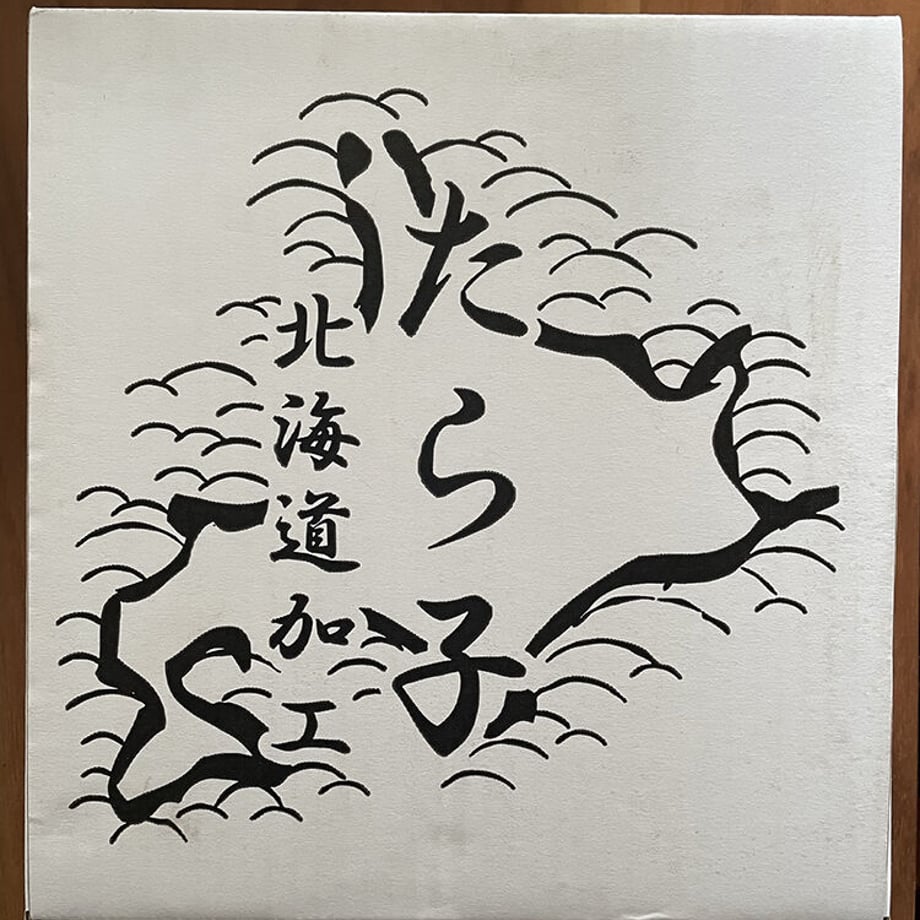 たら子
北海道加工